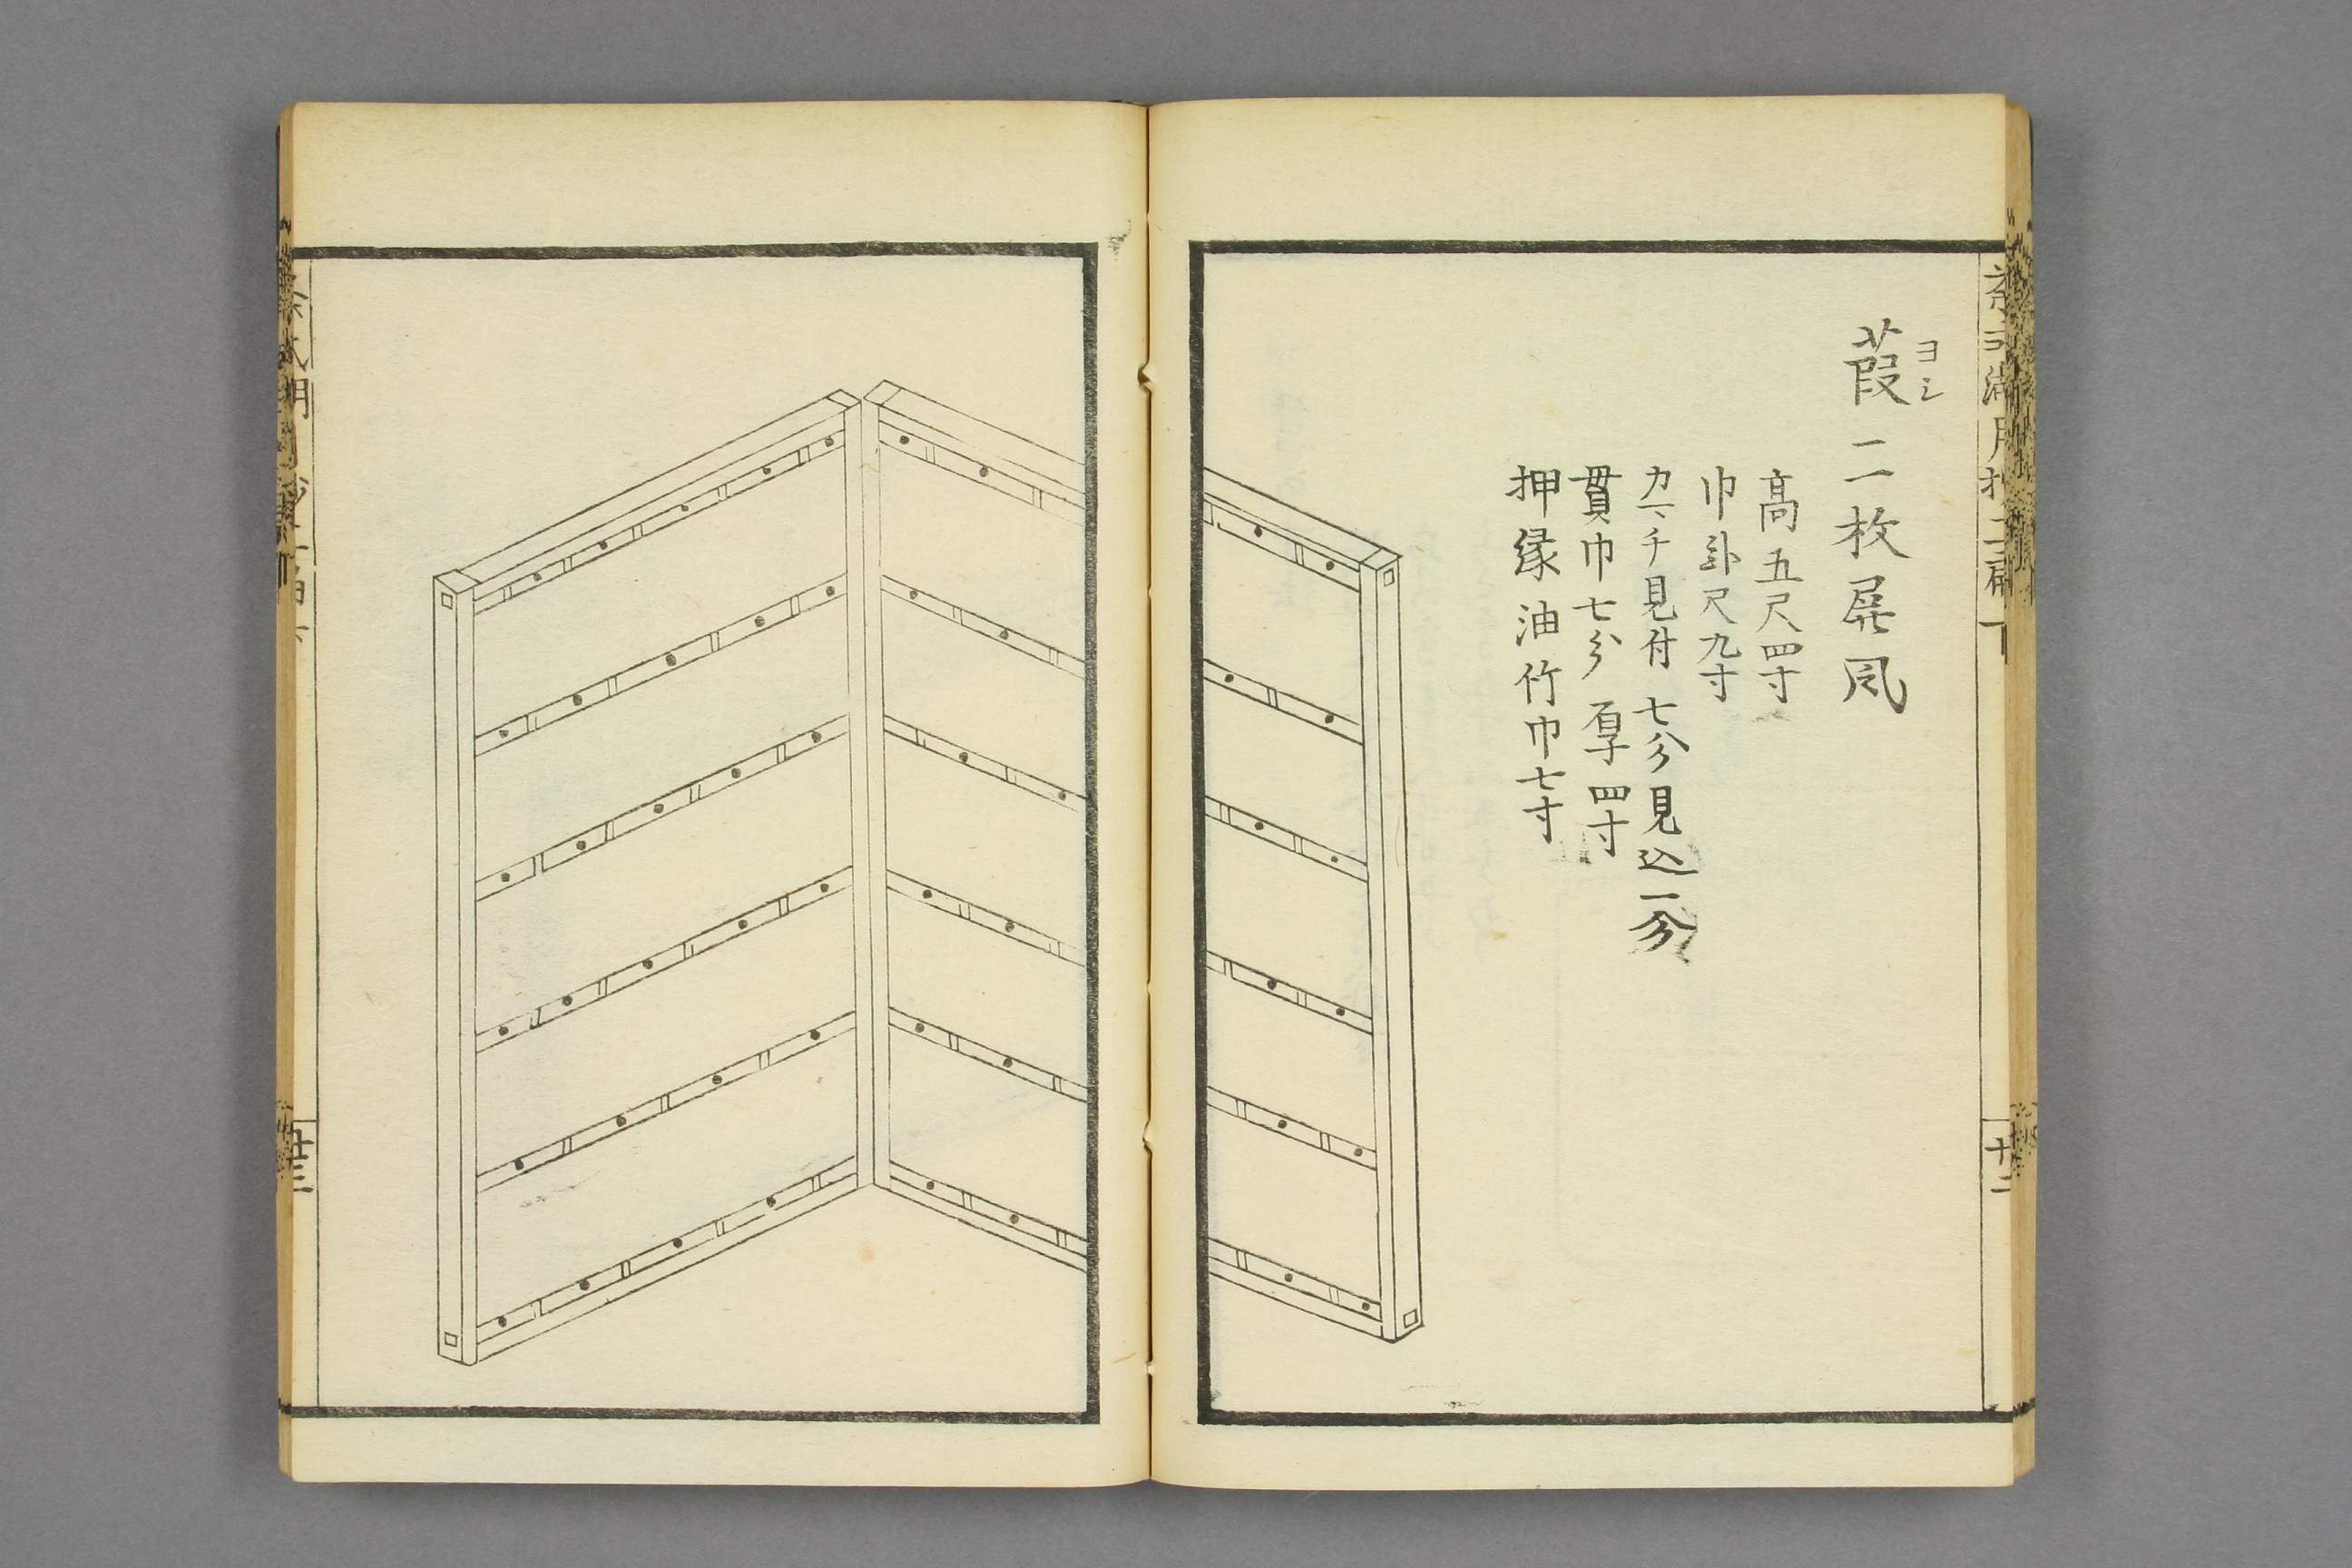 葭二枚屏風
ヨシ
高五尺四寸
巾 尺九寸
カマチ見付 七分見込一分
貫巾七分 厚四寸
押縁油竹巾七寸
十二
十三